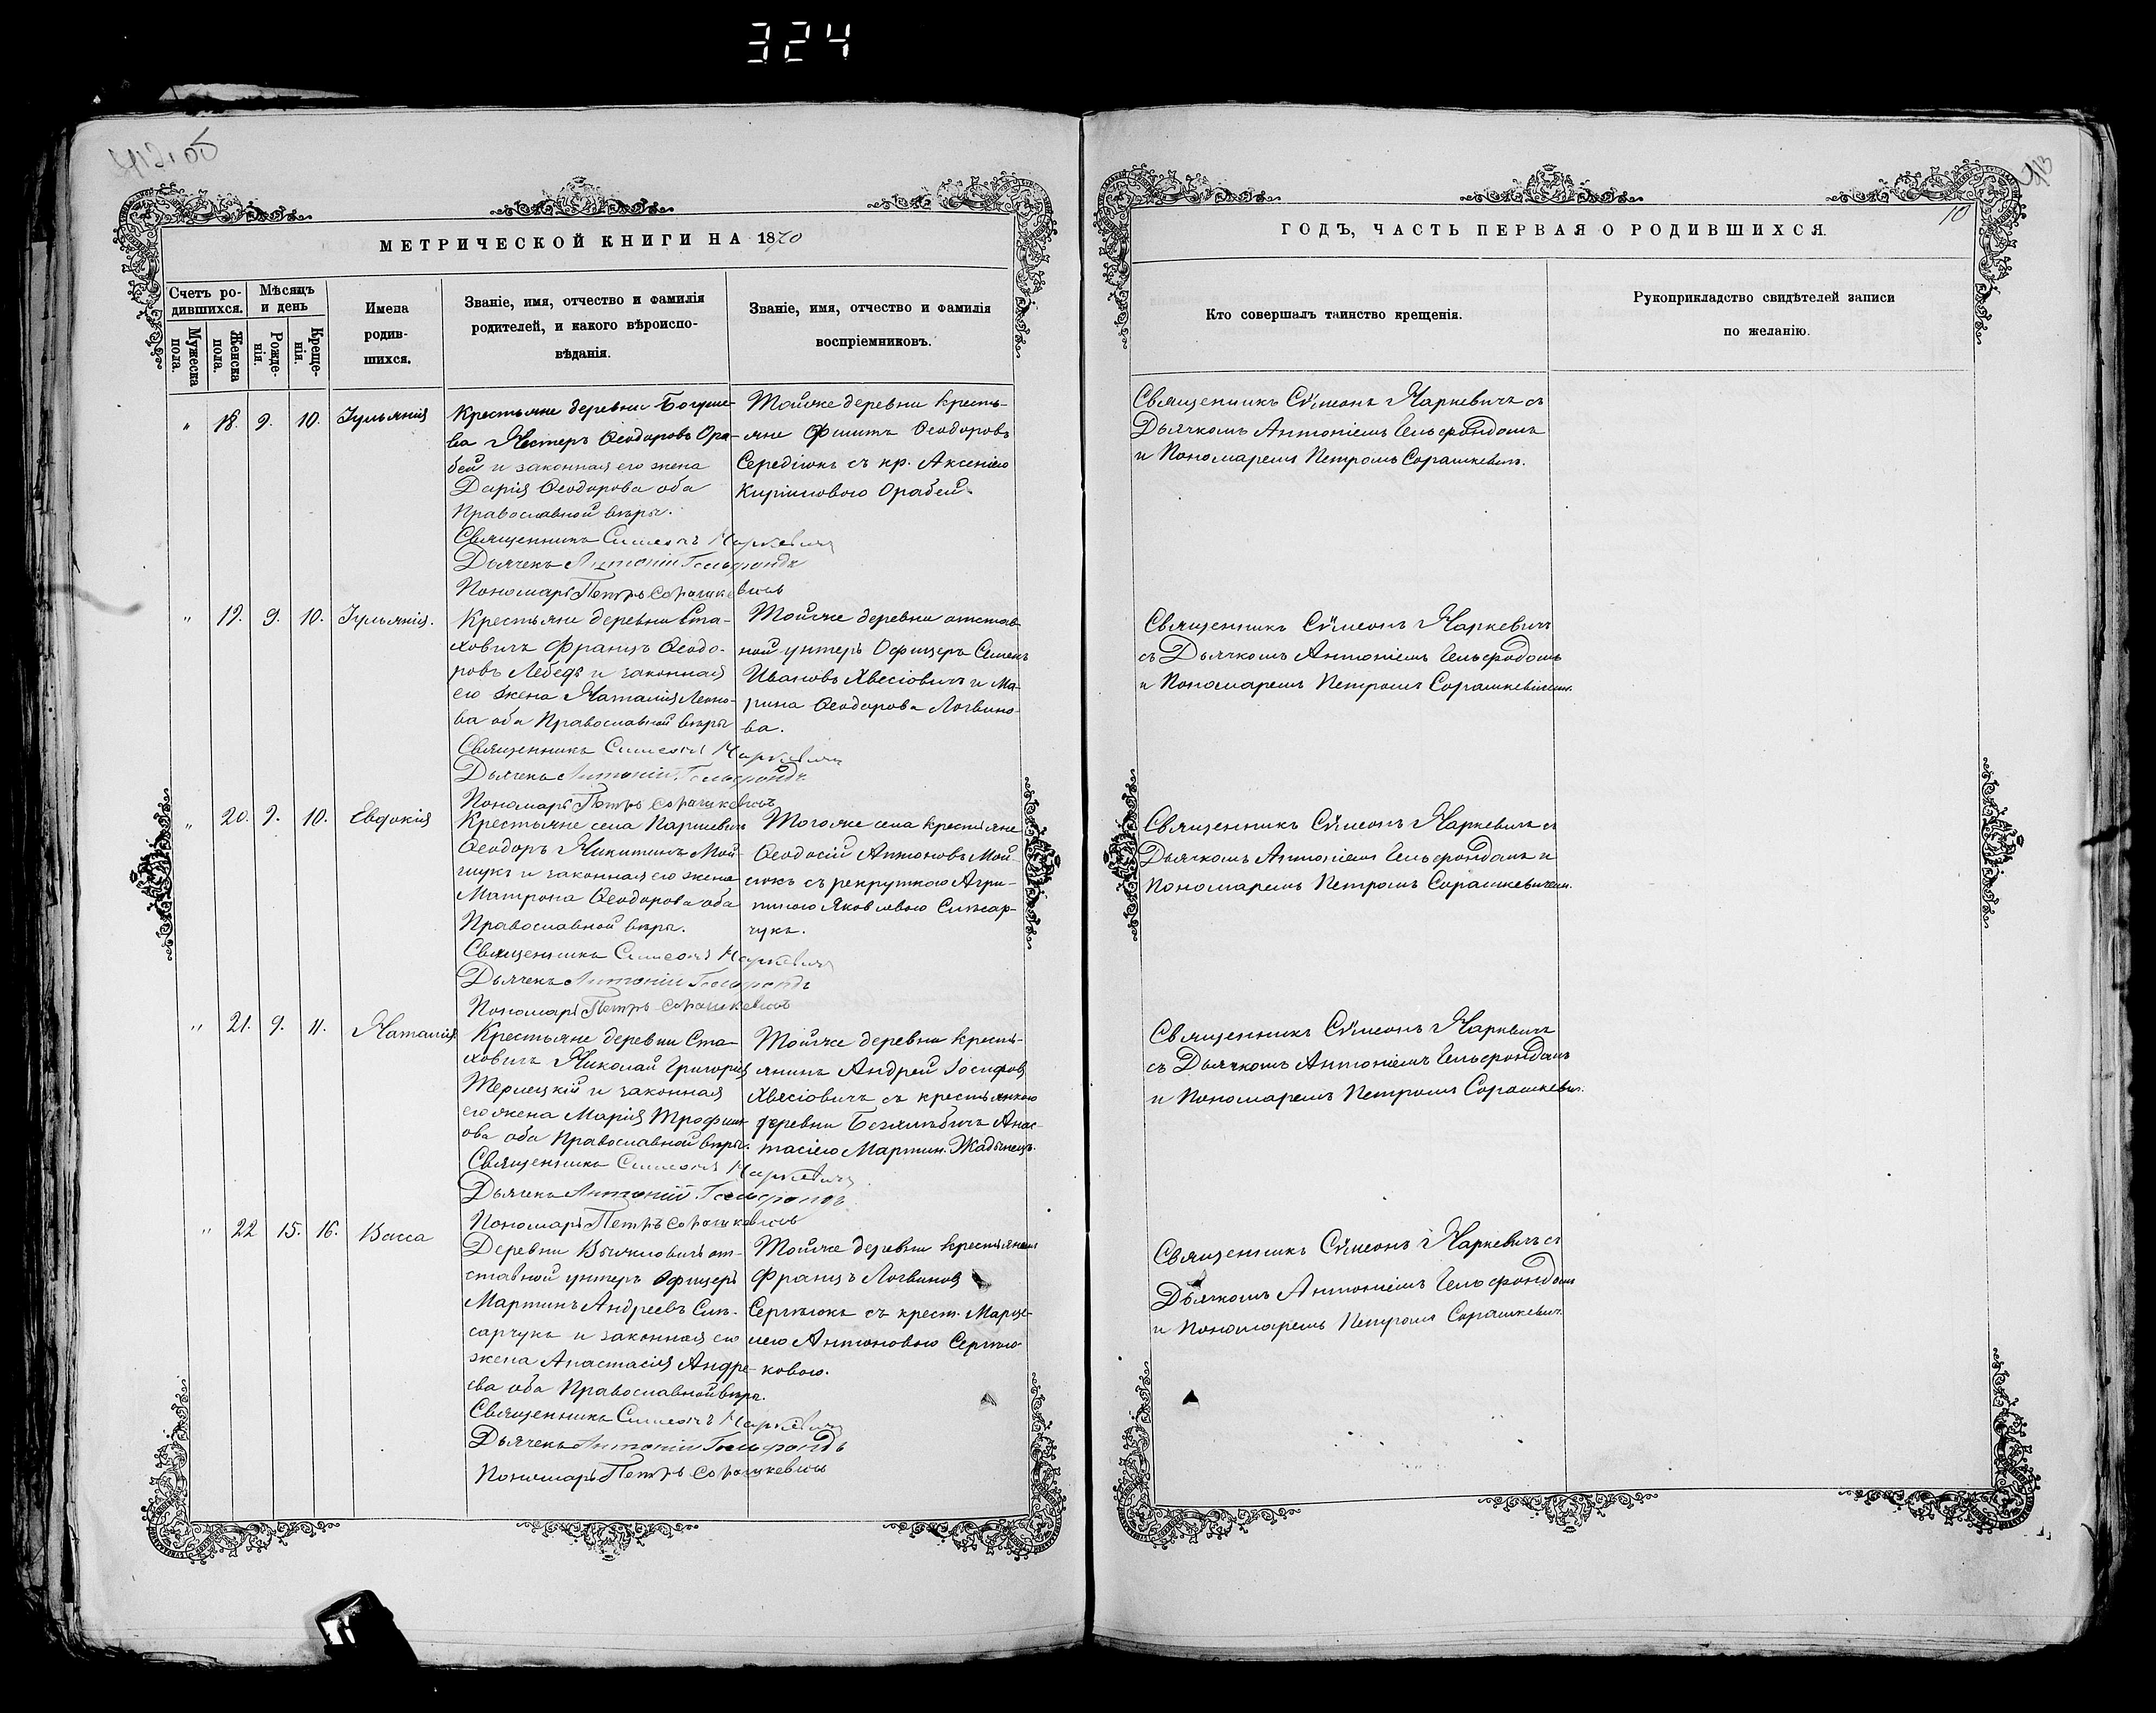 324
412 об
413
10
МЕТРИЧЕСКОЙ КНИГИ НА 1870
Счетъ ро-
дившихся.
Мужеска
пола.
Женска
пола.
Мѣсяцъ
и день
Рожде-
нія.
Креще-
нія.
Имена
родив-
шихся.
Званіе, имя, отчество и фамилія
родителей, и какого вѣроиспо-
вѣданія.
Званіе, имя, отчество и фамилія
воспріемниковъ.
" 18. 9. 10. Іульянія
Крестьяне деревни Богуше-
ва Нестеръ Ѳеодоровъ Ора-
бей и законная его жена
Дарія Ѳеодорова оба
Православной вѣры.
Священникъ Симеонъ Маркевичъ
Дьячекъ Антоній Гельфондъ
Пономарь Петръ Сорашкевичъ
Тойже деревни кресть-
яне Филипъ Ѳеодоровъ
Середюкъ съ кр. Аксеніею
Кириловою Орабей.
" 19. 9. 10. Іульянія.
Крестьяне деревни Ста-
ховичъ Францъ Ѳеодо-
ровъ Лебедь и законная
его жена Наталія
ва оба Православной вѣры
Священникъ Симеонъ Маркевичъ
Дьячекъ Антоній Гельфондъ
Пономарь Петръ Сорашкевичъ
Тойже деревни отстав-
ной унтеръ Офицеръ Семенъ
Ивановъ Хвесіовичъ и Ма-
рина Ѳеодорова Логвино-
ва.
" 20. 9. 10. Евдокія
Крестьяне села Паршевичъ
Ѳеодоръ Никитинъ Мой-
и законная его жена
Матрона Ѳеодорова оба
Православной вѣры.
Священникъ Симеонъ Маркевичъ
Дьячекъ Антоній Гельфондъ
Пономарь Петръ Сорашкевичъ
Тогоже села крестьяне
Ѳеодосій Антоновъ Мой-
съ рекруткою Агри-
пиною Яковлевою Слѣсар-
чукъ.
" 21. 9. 11. Наталія
Крестьяне деревни Ста-
ховичъ Николай Григоріевъ
Терлецкій и законная
его жена Марія Трофим-
ова оба Православной вѣры.
Священникъ Симеонъ Маркевичъ
Дьячекъ Антоній Гельфондъ
Пономарь Петръ Сорашкевичъ
Тойже деревни кресть-
янинъ Андрей Іосифовъ
Хвесіовичъ съ крестьянкою
деревни Анас-
тасіею Мартин.
" 22 15. 16. Васса
Деревни от-
ставной унтеръ Офицеръ
Мартинъ Андреевъ Слѣ-
сарчукъ и законная его
жена Анастасія Андре-
ева оба Православной вѣры.
Священникъ Симеонъ Маркевичъ
Дьячекъ Антоній Гельфондъ
Пономарь Петръ Сорашкевичъ
Тойже деревни крестьянинъ
Францъ Логвиновъ
съ крест. Марце-
лею Антоновою
ковою.
ГОДЪ, ЧАСТЬ ПЕРВАЯ О РОДИВШИХСЯ.
Кто совершалъ таинство крещенія.
Рукоприкладство свидѣтелей записи
по желанію.
Священникъ Сѵмеонъ Маркевичъ съ
Дьячкомъ Антоніемъ Гельфондомъ
и Пономаремъ Петромъ Сорашкевич.
Священникъ Сѵмеонъ Маркевичъ
съ Дьячкомъ Антоніемъ Гельфодомъ
и Пономаремъ Петромъ Сорашкевичемъ.
Священникъ Сѵмеонъ Маркевичъ съ
Дьячкомъ Антоніемъ Гельфондомъ и
Пономаремъ Петромъ Сорашкевичемъ.
Священникъ Сѵмеонъ Маркевичъ
съ Дьячкомъ Антоніемъ Гельфондомъ
и Пономаремъ Петромъ Сорашкевич.
Священникъ Сѵмеонъ Маркевичъ съ
Дьячкомъ Антоніемъ Гельфондом
и Пономаремъ Петромъ Сорашкевич.